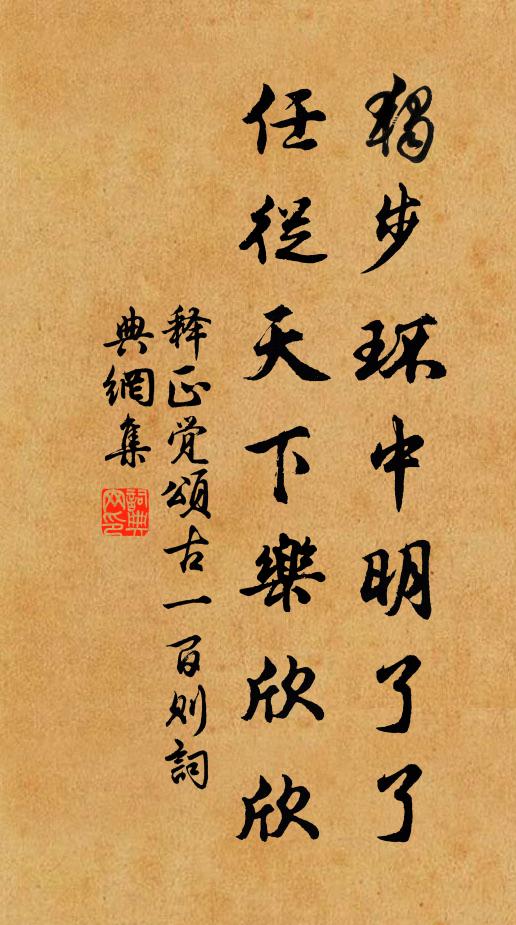 獨步环中明了了
任從天下樂欣欣
释正觉頌古一百则詞
典網集
詞典网印